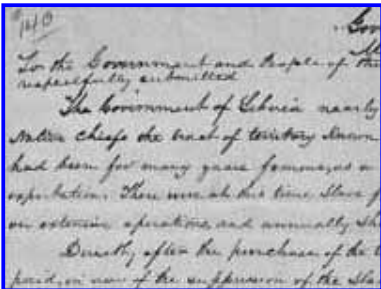 140
Gov
To the Government and People of the
respectfully submitted
The Government of Liberia nearly
native chiefs the tract of territory known
had been for many years famous, as a
exportation. There were at this time Slave f
on extensive operations, and annually sh
Directly after the purchase of the t
paid, in view of the suppression of the Sla